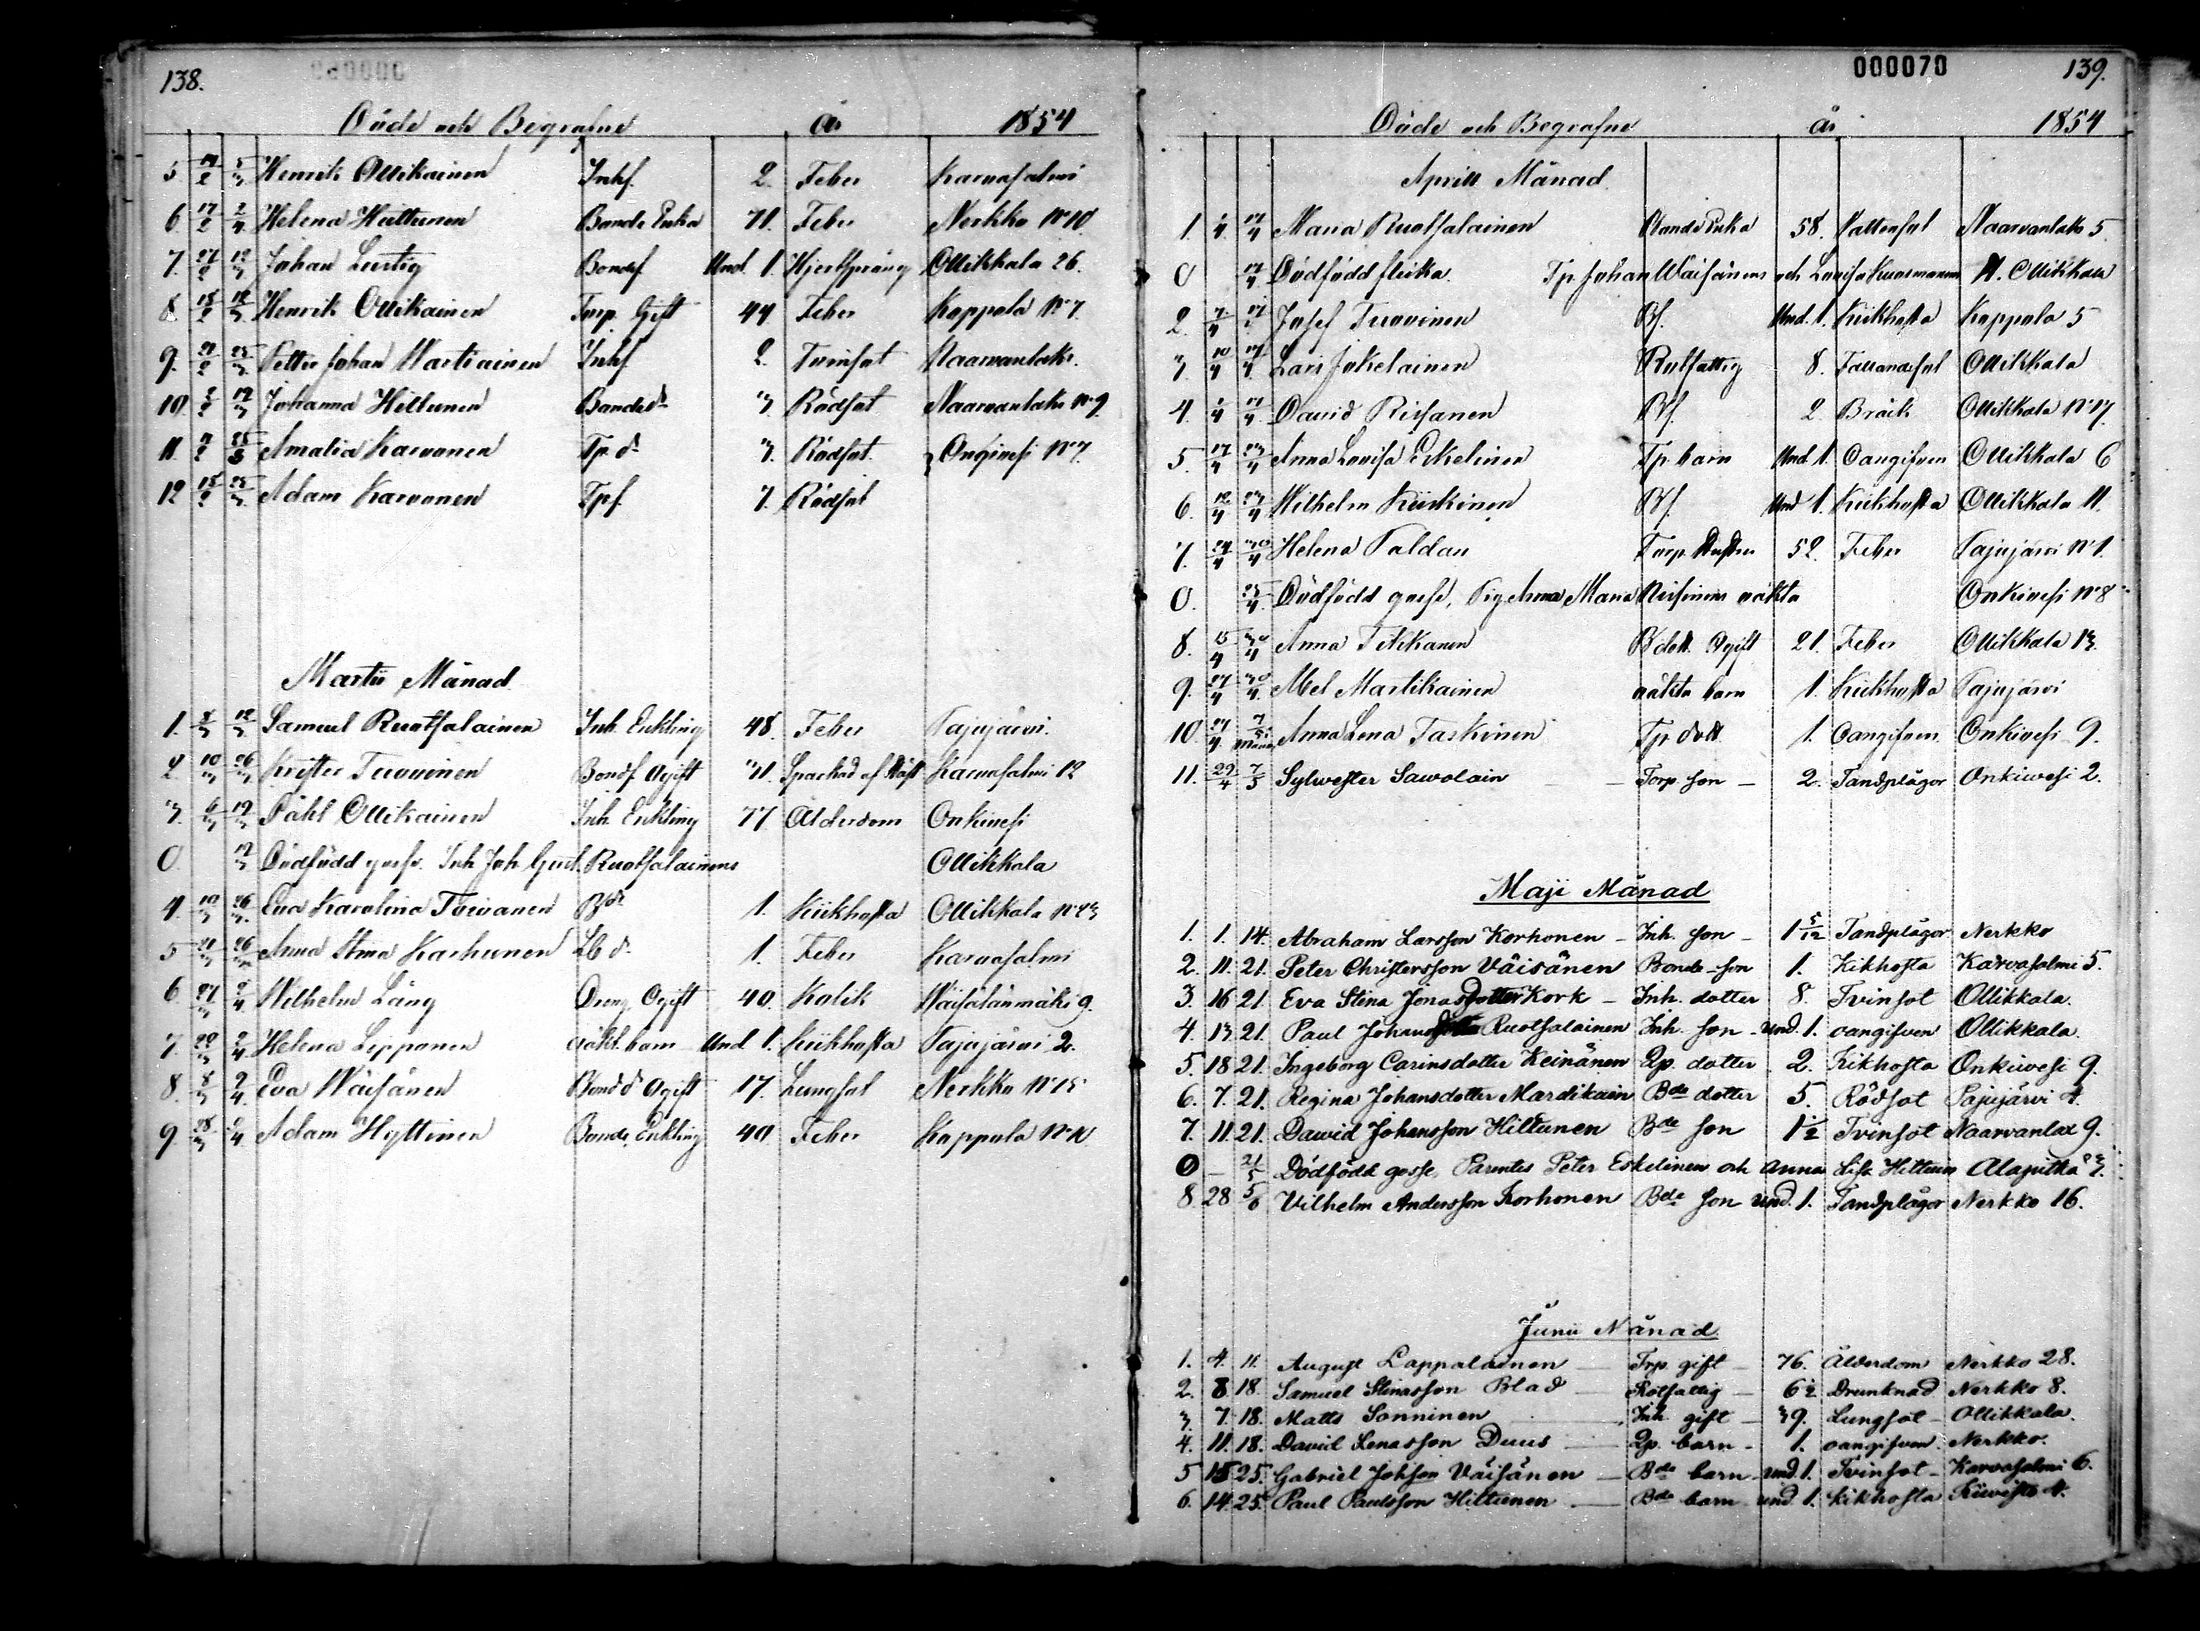 138.
Döde och Begrafne år 1854
5 Henrik Ollikainen Inhs. 2. Feber Karvasalmi
6 17/2 2/4 Helena Huttunen Bonde Enka 71. Feber Nerkko No 10
7. 27/2 12/3 Johan Lustig Bondes. Und. 1. Hjertsprång Ollikkala 26.
8. 18/2 12/3 Henrik Ollikainen Torp. Gift 44 Feber Kappala No 7.
9. 21/2 25/3 Petter Johan Martikainen Inhs. 2. Tvinsot Naarvanlaks.
10. 12/3 Johanna Hiltunen Bonded. 3. Rödsot Naarvanlaks No 9
11. 25/3 Amalia Karvonen Tp. d. 3. Rödsot. Onkivesi No 7.
12 18/2 25/3 Adam Karvonen Tps. 7. Rödsot
Martii Månad
1. 8/3 12/3 Samuel Ruotsalainen Inh. Enkling 48. Feber Pajujärvi.
2 10/3 26/3 Krister Turvinen Bonds. Ogift 31. Sparkad af Häst Karvasalmi 12
3. 6/3 12/3 Påhl Ollikainen Inh. Enkling 77 Ålderdom Onkivesi
0. 12/3 Dödfödd gosse. Inh Joh. Gust. Ruotsalainens Ollikkala
4 10/3 26/3 Eva Karolina Toivanen Bdr 1. Kikhosta Ollikkala No 23
5 21/3 26/3 Anna Stina Karhunen Lb d. 1. Feber Karvasalmi
6 27/3 2/4 Wilhelm Lång Dreng Ogift 40. Kolik Väisälänmäki 9.
7. 20/3 2/4 Helena Lipponen oäkt. barn Und 1. Kikhosta Pajujärvi 2.
8. 8/3 2/4. Eva Wäisänen Bond d Ogift 17. Lungsot Nerkko No 15
9 28/3 2/4 Adam Hyttinen Bonde Enkling 40. Feber Kappala No 10
000070 139.
Döde och Begrafne år 1854
Aprill Månad
1. 1/4 17/4 Maria Ruotsalainen Bonde Enka 58. Vattensot Naarvanlaks 5.
0 17/4 Dödfödd flicka. Tp Johan Wäisänens och Lovisa Kuosmanen N. Ollikkala
2. 7/4 17/4 Josef Turvinen Bs. Und. 1. Kikhosta Kappala 5
3. 10/4 17/4 Lars Jokelainen Rotfattig 8. Fallandesot Ollikkala
4. 1/4 17/4 David Rissanen Bs. 2 Bråck Ollikkala No 17.
5. 17/4 23/4 Anna Lovisa Eskelinen Tp barn Und. 1. Oangifven Ollikkala 6
6. 12/4 23/4 Wilhelm Kiiskinen Bs. Und 1. Kikhosta Ollikkala 11.
7. 24/4 30/4 Helena Paldan Torp. Hustru 52. Feber Pajujärvi No 1.
0. 25/4 Dödfödd gosse, Pig. Anna Maria Nissinens oäkta Onkivesi No 8
8. 15/4 30/4 Anna Tikkanen B dott. Ogift 21. Feber Ollikkala 13.
9. 27/4 30/4 Abel Martikainen oäkta barn 1. Kikhosta Pajujärvi
10. 27/4 7/5 Anna Lena Taskinen Tp. dott 1. Oangifven Onkivesi 9.
11. 29/4 7/5 Sylwester Sawolain — Torp. son — 2. Tandplågor Onkiwesi 2.
Maji Månad
1. 1. 14. Abraham Larsson Korhonen — Inh. son — 1 5/12 Tandplågor. Nerkko
2. 11. 21. Peter Christersson Väisänen Bonde-son 1. Kikhosta Karvasalmi 5.
3. 16 21. Eva Stina Jonasdotter Kork — Inh. dotter 8. Tvinsot Ollikkala.
4. 13 21. Paul Johansson Ruotsalainen Inh. son — und. 1. oangifven Ollikkala.
5. 18 21. Ingeborg Carinsdotter Keinänen Qp. dotter 2. Kikhosta Onkiwesi 9.
6. 7. 21. Regina Johansdotter Mardikain Bde dotter 5. Rödsot Pajujärvi 4.
7. 11. 21. Dawid Johansson Hiltunen Bde son 1 1/2 Tvinsot Naarvanlax 9.
0 — 21/5 Dödfödd gosse, Parentes Peter Eskelinen och Anna Lisa Hiltunen Alapitkä 3.
8 28 5/6 Vilhelm Andersson Korhonen Bde son und. 1. Tandplågor Nerkko 16.
Junii Månad.
1. 4. 11. August Lappalainen — Trp. gift — 76. Ålderdom Nerkko 28.
2. 8 18. Samuel Stinasson Blad — Rotfattig — 6 1/2 Drunknad Nerkko 8.
3 7. 18. Matts Sonninen — Inh. gift — 39. Lungsot — Ollikkala.
4. 11. 18. David Lenasson Duus — Qp. barn — 1. oangifven. Nerkko.
5 15 25. Gabriel Johsson Väisänen — Bde barn — und. 1. Tvinsot — Karvasalmi 6.
6. 14. 25. Paul Paulsson Hiltunen — Bde barn — und 1. Kikhosta Kiwistö 4.